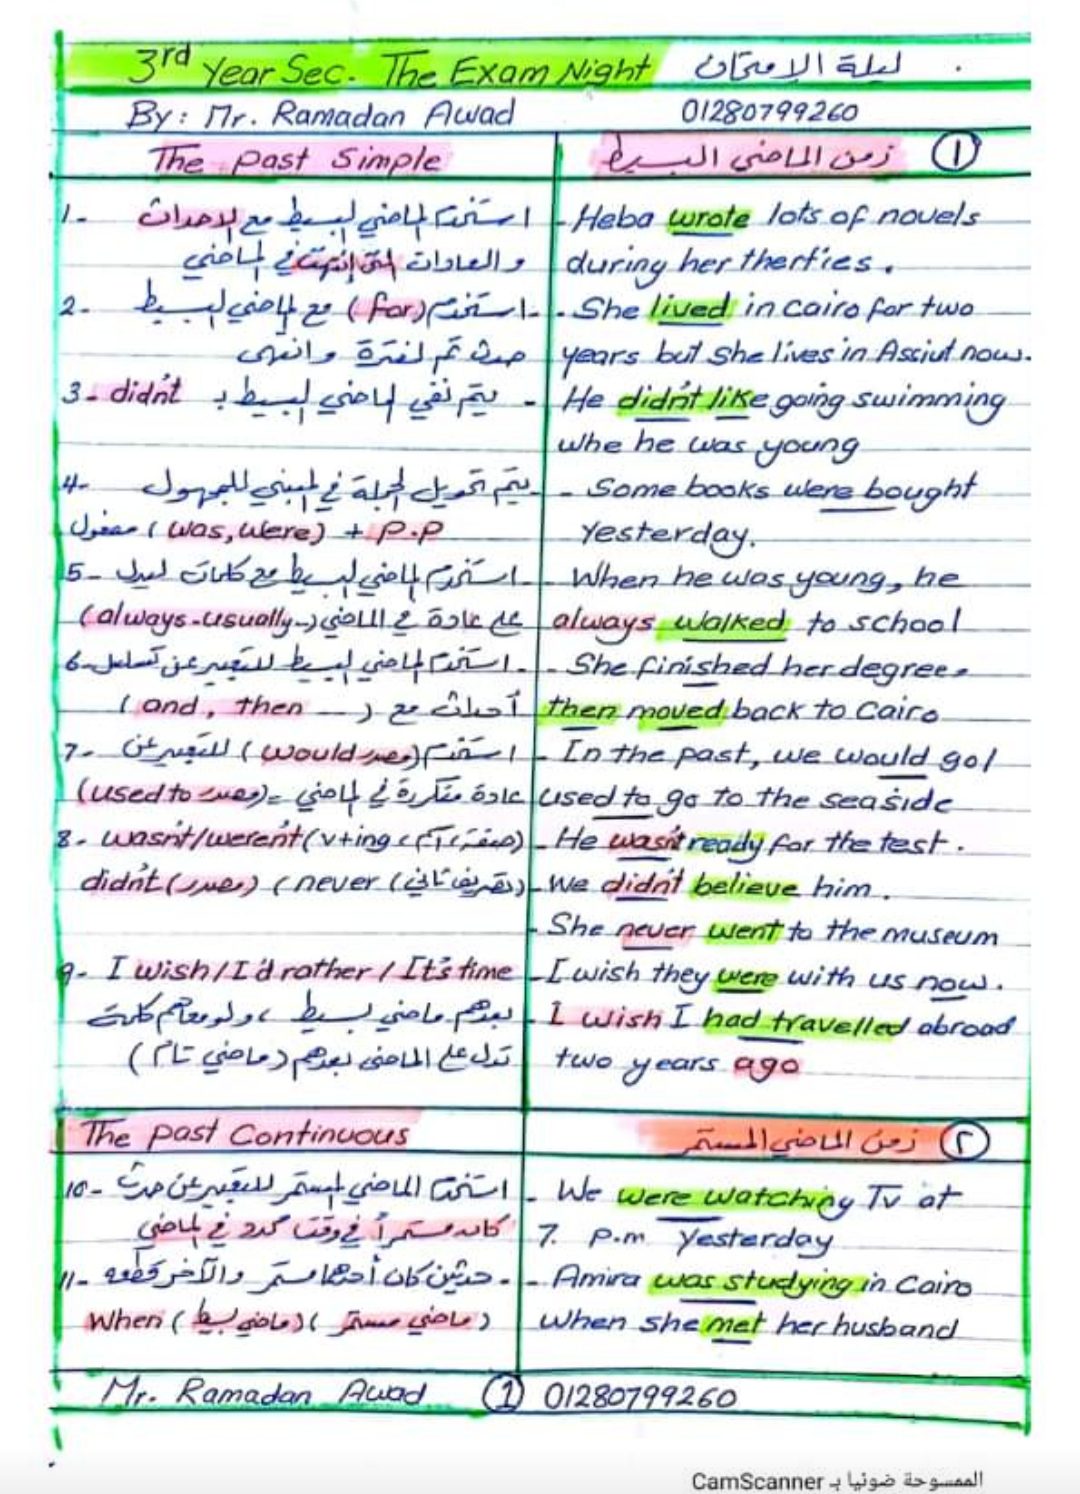 3rd Year Sec. The Exam Night ليلة الامتحان
By: Mr. Ramadan Awad 01280799260
The past Simple
زمن الماضى البسيط ١
1- استخدم الماضي البسيط مع الاحداث
والعادات التى إنتهت في الماضي
- Heba wrote lots of novels
during her therties.
2- استخدم (for) مع الماضي البسيط
حدث تم لفترة وانتهى
- She lived in Cairo for two
years but she lives in Assiut now.
3- didn't يتم نفي الماضي البسيط بـ
- He didn't like going swimming
whe he was young
4- يتم تحويل الجملة في المبني للمجهول
مفعول (was, were) + P.P
- Some books were bought
yesterday.
5- استخدم الماضي البسيط مع كلمات تدل
على عادة في الماضي (always-usually-)
- When he was young, he
always walked to school
6- استخدم الماضي البسيط للتعبير عن تسلسل
أحداث مع (and, then ---)
- She finished her degree,
then moved back to Cairo
7- استخدم (would مصدر) للتعبير عن
عادة متكررة في الماضي = (used to مصدر)
- In the past, we would go/
used to go to the seaside
8- wasn't/weren't (v+ing ، اسم ، صفة)
didn't (مصدر) (never (تصريف ثاني)
- He wasn't ready for the test.
- We didn't believe him.
- She never went to the museum
9- I wish/I'd rather/It's time
بعدهم ماضي بسيط ، ولو معاهم كلمة
تدل على الماضى بعدهم (ماضي تام)
- I wish they were with us now.
- I wish I had travelled abroad
two years ago
The past Continuous
زمن الماضي المستمر ٢
10- استخدم الماضي المستمر للتعبير عن حدث
كان مستمراً في وقت محدد في الماضي
- We were watching Tv at
7. p.m yesterday
11- حدثين كان أحدهما مستمر والآخر قطعه
When (ماضي بسيط) (ماضي مستمر)
- Amira was studying in Cairo
when she met her husband
Mr. Ramadan Awad 1 01280799260
الممسوحة ضوئيا بـ CamScanner